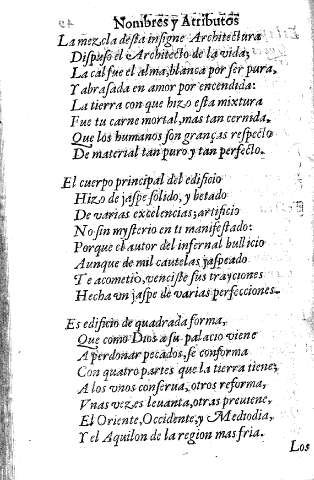 Nombres y Atributos
La mezcla desta insigne Architectura
Dispuso el Architecto de la vida;
La cal fue el alma, blanca por ser pura,
Y abrasada en amor por encendida:
La tierra con que hizo esta mixtura
Fue tu carne mortal, mas tan cernida.
Que los humanos son granças respecto
De material tan puro y tan perfecto.
El cuerpo principal del edificio
Hizo de jaspe solido, y betado
De varias excelencias; artificio
No sin mysterio en ti manifestado:
Porque el autor del infernal bullicio
Aunque de mil cautelas jaspeado
Te acometio, venciste sus trayciones
Hecha un jaspe de varias perfecciones.
Es edificio de quadrada forma,
Que como Dios a su palacio viene
A perdonar pecados, se conforma
Con quatro partes que la tierra tiene;
A los unos conserva, otros reforma,
Vnas vezes levanta, otras previene,
El Oriente, Occidente, y Mediodia,
Y el Aquilon de la region mas fria.
Los